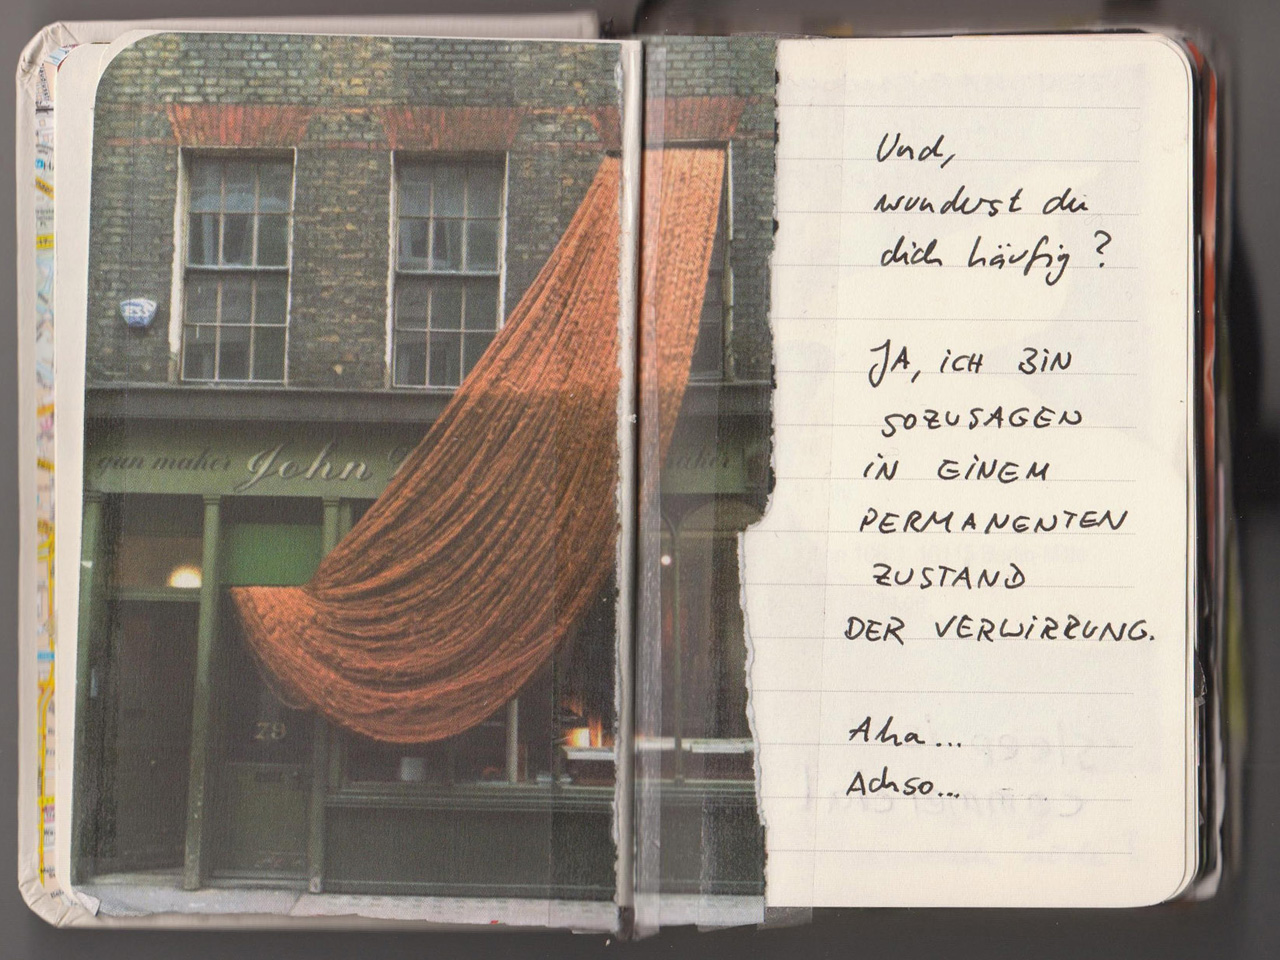 John
79
Und,
wunderst du
dich häufig?
JA, iCH BiN
SOZUSAGEN
iN EiNEM
PERMANENTEN
ZUSTAND
DER VERWiRRUNG.
Aha...
Achso...